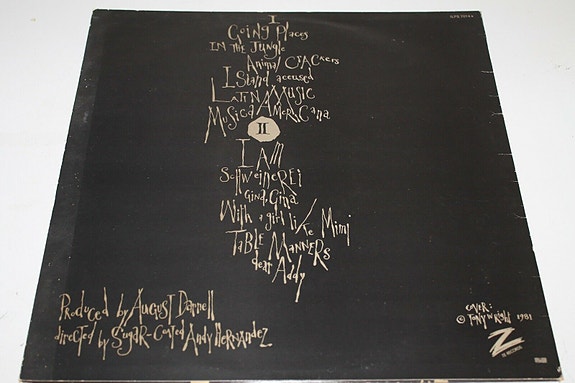 I
Going Places
In the Jungle
Animal Crackers
I Stand accused
Latin Music
Musica Americana
II
I Am
Schweinerei
Gina, Gina
With a girl like Mimi
Table Manners
dear Addy
Produced by August Darnell
directed by Sugar-Coated Andy Hernandez
cover:
© Tony Wright 1981
Z
ZE RECORDS